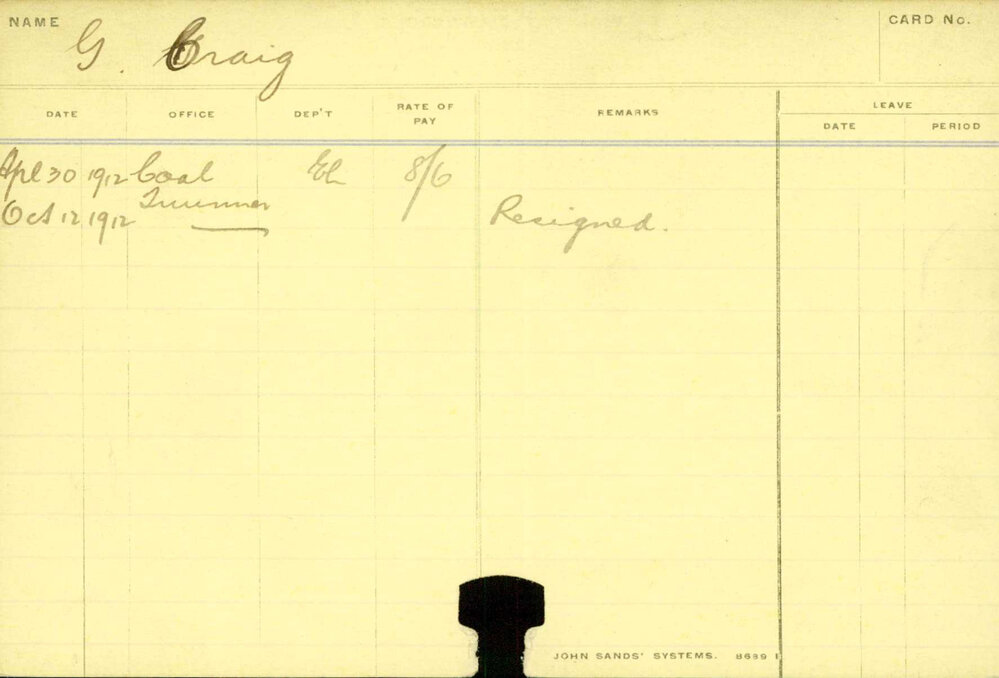 NAME G. Craig CARD No.
DATE OFFICE DEP'T RATE OF PAY REMARKS LEAVE
DATE PERIOD
Apl 30 1912 Coal El 8/6
Trimmer
Oct 12 1912 Resigned.
JOHN SANDS' SYSTEMS. 8689